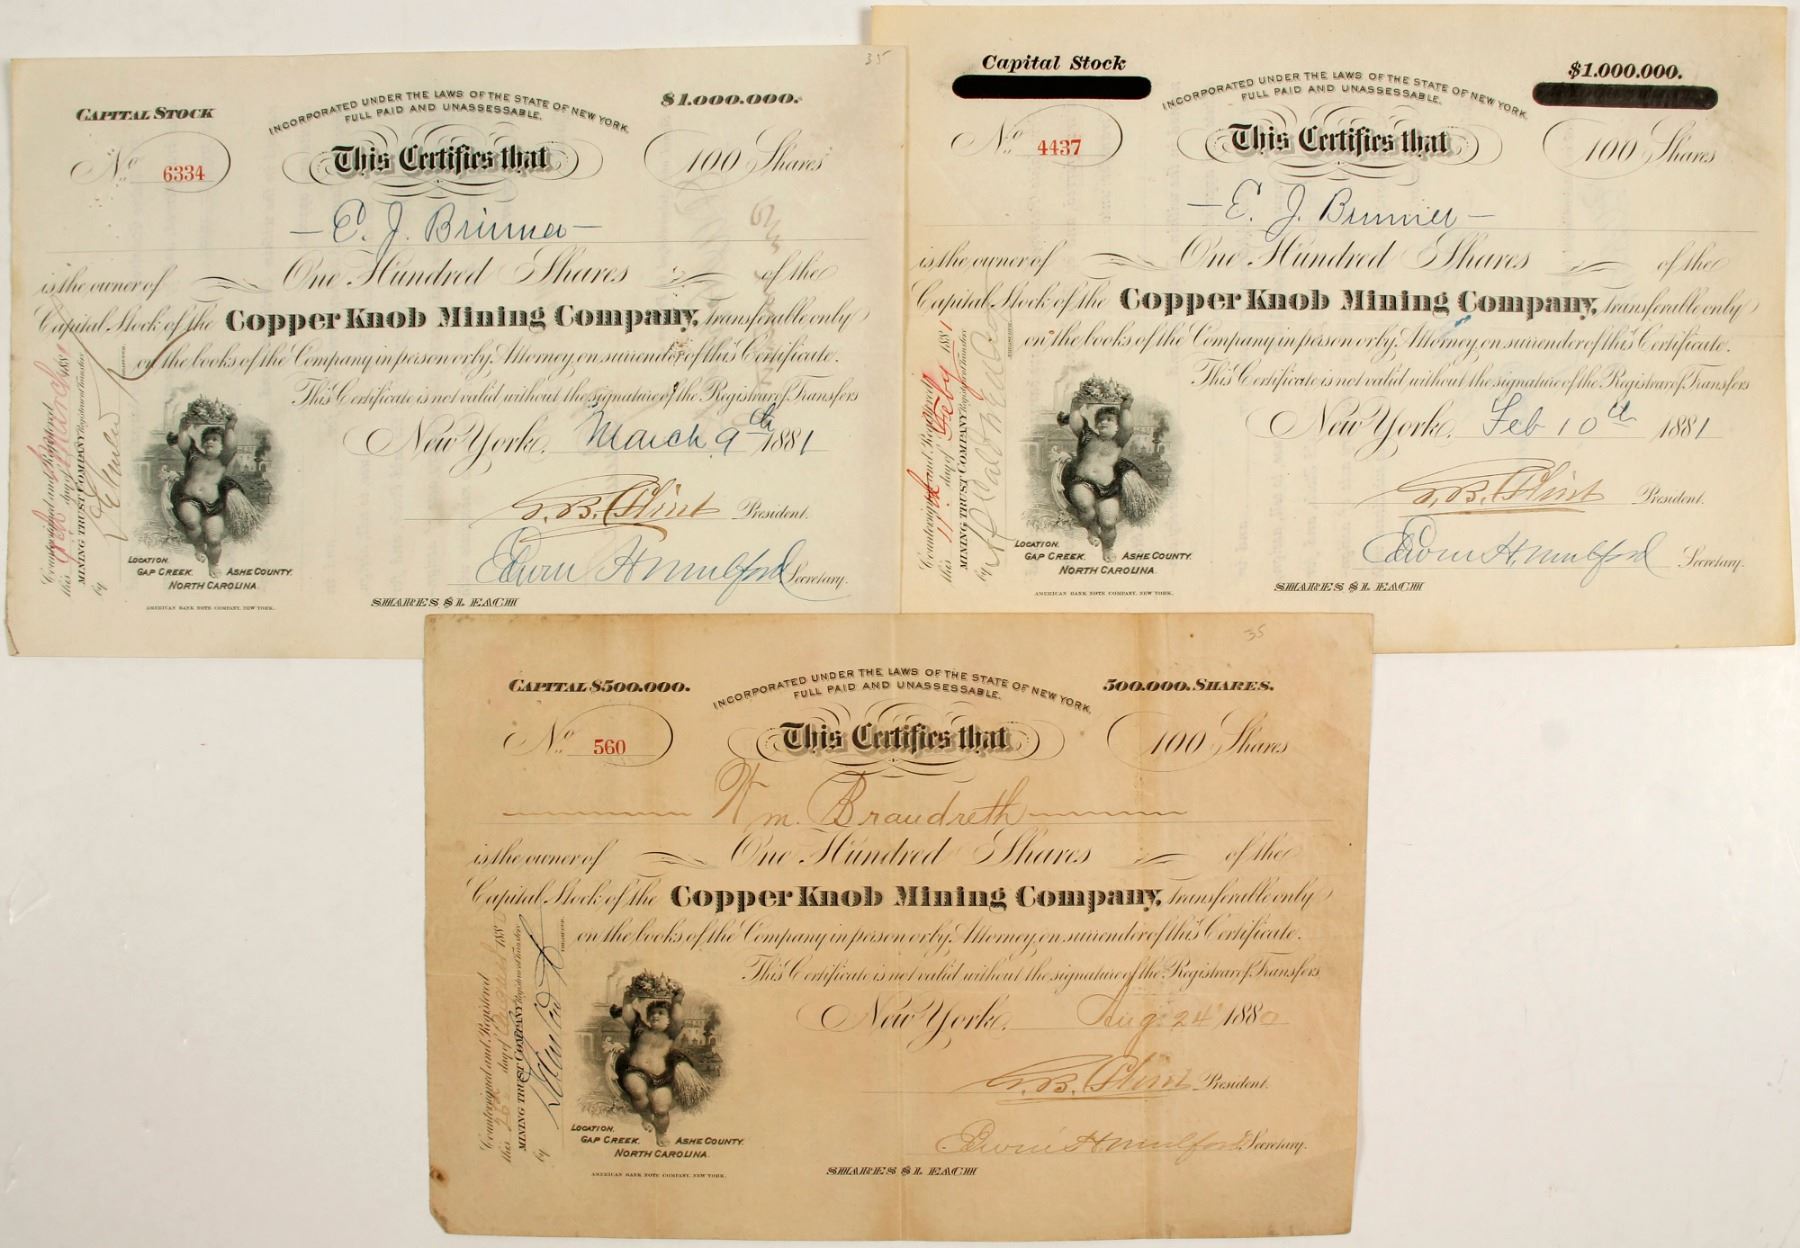 35
CAPITAL STOCK
INCORPORATED UNDER THE LAWS OF THE STATE OF NEW YORK.
FULL PAID AND UNASSESSABLE.
$1.000.000.
No. 6334
This Certifies that
100 Shares
E. J. Brunner
is the owner of One Hundred Shares of the
Capital Stock of the Copper Knob Mining Company, transferable only
on the books of the Company in person or by Attorney, on surrender of this Certificate.
This Certificate is not valid without the signature of the Registrar of Transfers
New York, March 9th 1881
G. B. Flint President.
Edwin H. Mulford Secretary.
Countersigned and Registered
this 9th day of March 1881
MINING TRUST COMPANY Registrar of Transfers
by
LOCATION,
GAP CREEK, ASHE COUNTY,
NORTH CAROLINA.
AMERICAN BANK NOTE COMPANY, NEW YORK.
SHARES $1. EACH
Capital Stock
INCORPORATED UNDER THE LAWS OF THE STATE OF NEW YORK,
FULL PAID AND UNASSESSABLE.
$1.000.000.
No. 4437
This Certifies that
100 Shares
E. J. Brunner
is the owner of One Hundred Shares of the
Capital Stock of the Copper Knob Mining Company, transferable only
on the books of the Company in person or by Attorney, on surrender of this Certificate.
This Certificate is not valid without the signature of the Registrar of Transfers
New York, Feb 10th 1881
G. B. Flint President.
Edwin H. Mulford Secretary.
Countersigned and Registered
this 11th day of Feby 1881
MINING TRUST COMPANY Registrar of Transfers
by
LOCATION,
GAP CREEK, ASHE COUNTY,
NORTH CAROLINA.
AMERICAN BANK NOTE COMPANY, NEW YORK.
SHARES $1. EACH
35
CAPITAL $500.000.
INCORPORATED UNDER THE LAWS OF THE STATE OF NEW YORK,
FULL PAID AND UNASSESSABLE.
500.000. SHARES.
No. 560
This Certifies that
100 Shares
Wm. Brandreth
is the owner of One Hundred Shares of the
Capital Stock of the Copper Knob Mining Company, transferable only
on the books of the Company in person or by Attorney, on surrender of this Certificate.
This Certificate is not valid without the signature of the Registrar of Transfers
New York, Aug. 24 1880
G. B. Flint President.
Edwin H. Mulford Secretary.
Countersigned and Registered
this 26 day of August 1880
MINING TRUST COMPANY Registrar of Transfers
by
LOCATION,
GAP CREEK, ASHE COUNTY,
NORTH CAROLINA.
AMERICAN BANK NOTE COMPANY, NEW YORK.
SHARES $1. EACH